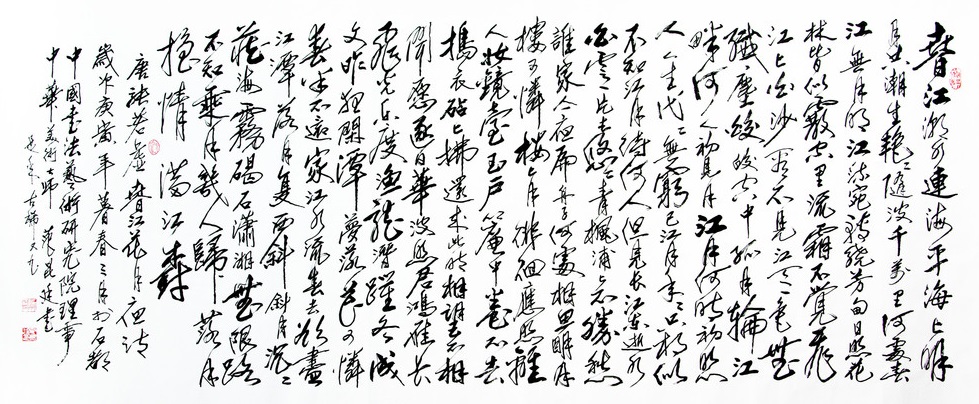 春江潮水連海平海上明
月共潮生艷々隨波千萬里何處春
江無月明江流宛轉繞芳甸月照花
林皆似霰空里流霜不覺飛
江上白沙看不見江天一色無
纖塵皎皎空中孤月輪江
畔何人初見月江月何時初照
人人生代々無窮已江月年々只相似
不知江月待何人但見長江送流水
白雲一片去悠々青楓浦上不勝愁
誰家今夜扁舟子何處相思明月
樓可憐樓上月徘徊應照離
人妝鏡臺玉戶簾中卷不去
搗衣砧上拂還來此時相望不相
聞愿逐月華流照君鴻雁長
飛光不度漁龍潛躍水成
文昨夜閑潭夢落花可憐
春半不還家江水流春去欲盡
江潭落月復西斜斜月沉々
藏海霧碣石瀟湘無限路
不知乘月幾人歸落月
搖情滿江樹
唐張若虛春江花月夜詩
歲次庚寅年暮春三月於石都
中國書法藝術研究院理事
中華美術大師